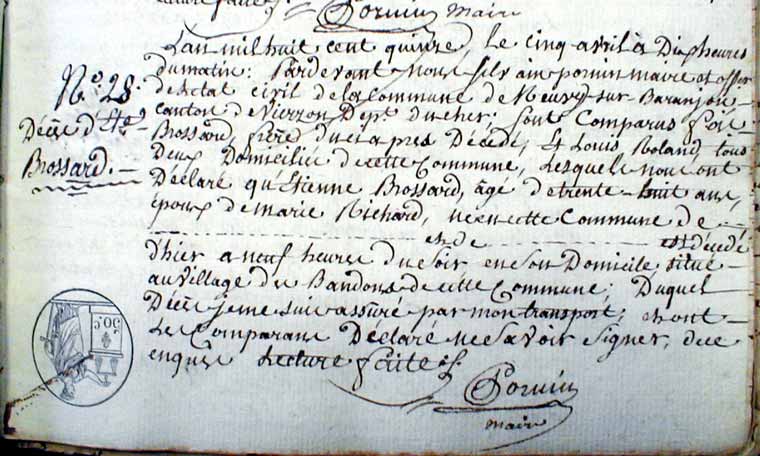 Pornin
Maire
L'an mil huit cent quinze, le cinq avril à Dix heures
Du matin: Pardevant Nous Silvain pornin maire et offier
de Letat civil de la Commune de Neuvy-sur-Baranjon-
N.º 28.
canton de Vierzon Dept. du cher; sont Comparus
Décès d'Etne
Brossard, frère du ci après Décédé, Et Louis Roland, tous
Brossard.
Deux Domicilié de cette Commune, Lesquel nous ont
Déclaré qu'Etienne Brossard, âgé de trente-huit ans,
époux de Marie Richard, né en cette Commune de
et de est décédé
d'hier a neuf heure du soir en son Domicile, situé
au village de Bandons de cette Commune; Duquel
Décès je me suis assuré par mon transport; et ont
Le Comparans Déclaré ne Savoir Signer, de ce
enquis Lecture faite
Pornin
Maire
50 C.